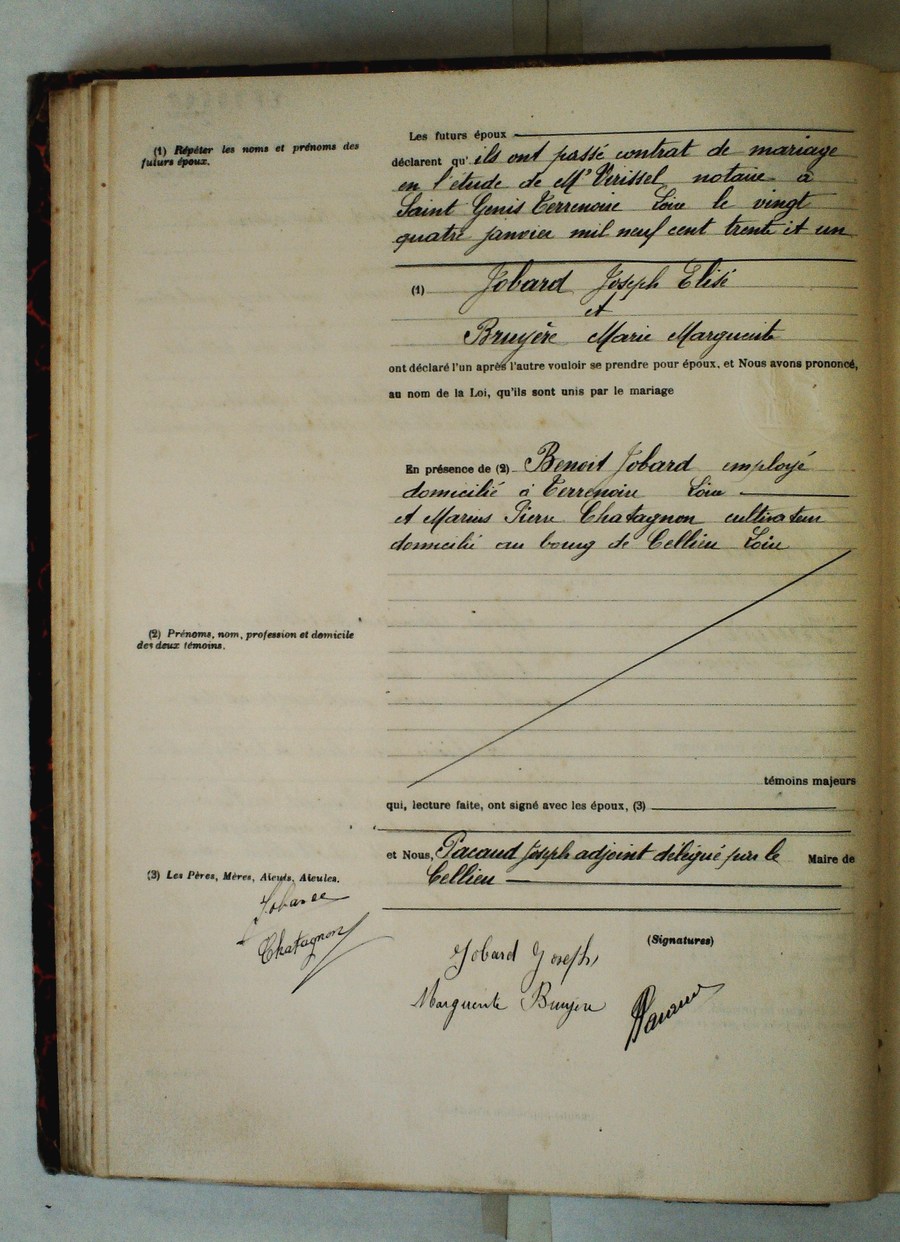 (1) Répéter les noms et prénoms des
futurs époux.
Les futurs époux
déclarent qu'ils ont passé contrat de mariage
en l'étude de Me Verissel notaire à
Saint Genis Terrenoire Loire le vingt
quatre janvier mil neuf cent trente et un
(1) Jobard Joseph Elisé
et
Bruyère Marie Marguerite
ont déclaré l'un après l'autre vouloir se prendre pour époux, et Nous avons prononcé,
au nom de la Loi, qu'ils sont unis par le mariage
En présence de (2) Benoit Jobard employé
domicilié à Terrenoire Loire
et Marius Pierre Chatagnon cultivateur
domicilié au bourg de Cellieu Loire
(2) Prénoms, nom, profession et domicile
des deux témoins.
témoins majeurs
qui, lecture faite, ont signé avec les époux, (3)
et Nous, Pacaud Joseph adjoint délégué par le Maire de
Cellieu
(3) Les Pères, Mères, Aïeuls, Aïeules.
Chatagnon
(Signatures)
Jobard Joseph
Marguerite Bruyère
Pacaud